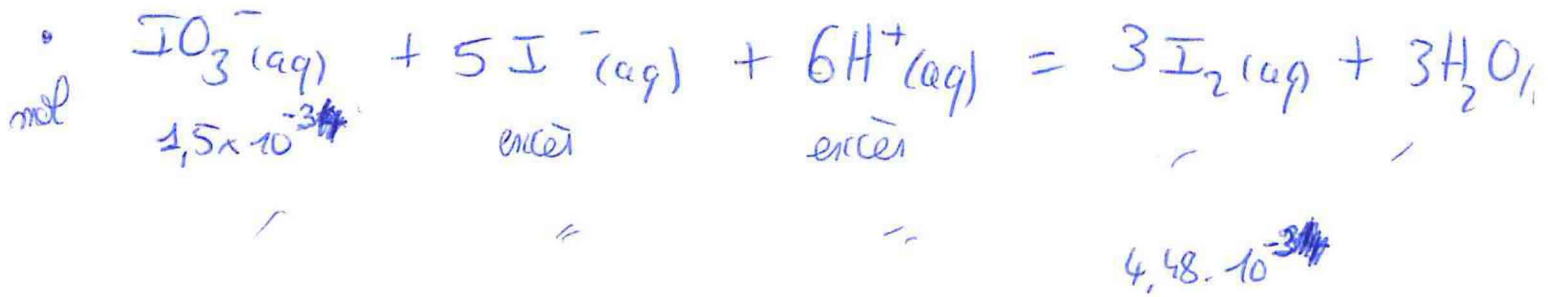 • IO₃⁻(aq) + 5 I⁻(aq) + 6H⁺(aq) = 3 I₂(aq) + 3H₂O
mol 1,5 × 10⁻³ excès excès - -
- " "
4,48. 10⁻³